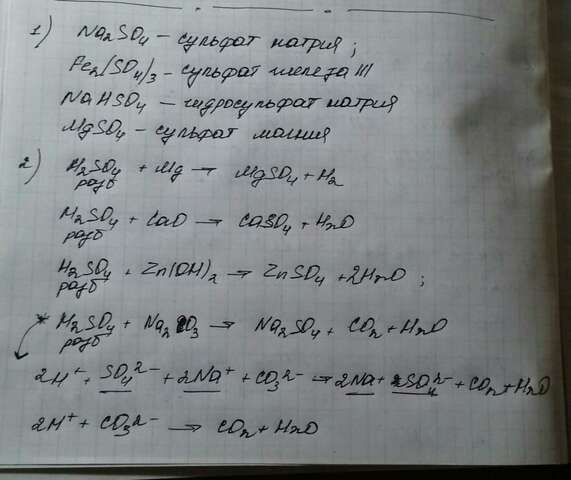 1) Na₂SO₄ – сульфат натрия;
Fe₂(SO₄)₃ – сульфат железа III
NaHSO₄ – гидросульфат натрия
MgSO₄ – сульфат магния
2) H₂SO₄ + Mg → MgSO₄ + H₂
разб
H₂SO₄ + CaO → CaSO₄ + H₂O
разб
H₂SO₄ + Zn(OH)₂ → ZnSO₄ + 2H₂O;
разб
* H₂SO₄ + Na₂CO₃ → Na₂SO₄ + CO₂ + H₂O
разб
2H⁺ + SO₄²⁻ + 2Na⁺ + CO₃²⁻ → 2Na⁺ SO₄²⁻ + CO₂ + H₂O
2H⁺ + CO₃²⁻ → CO₂ + H₂O